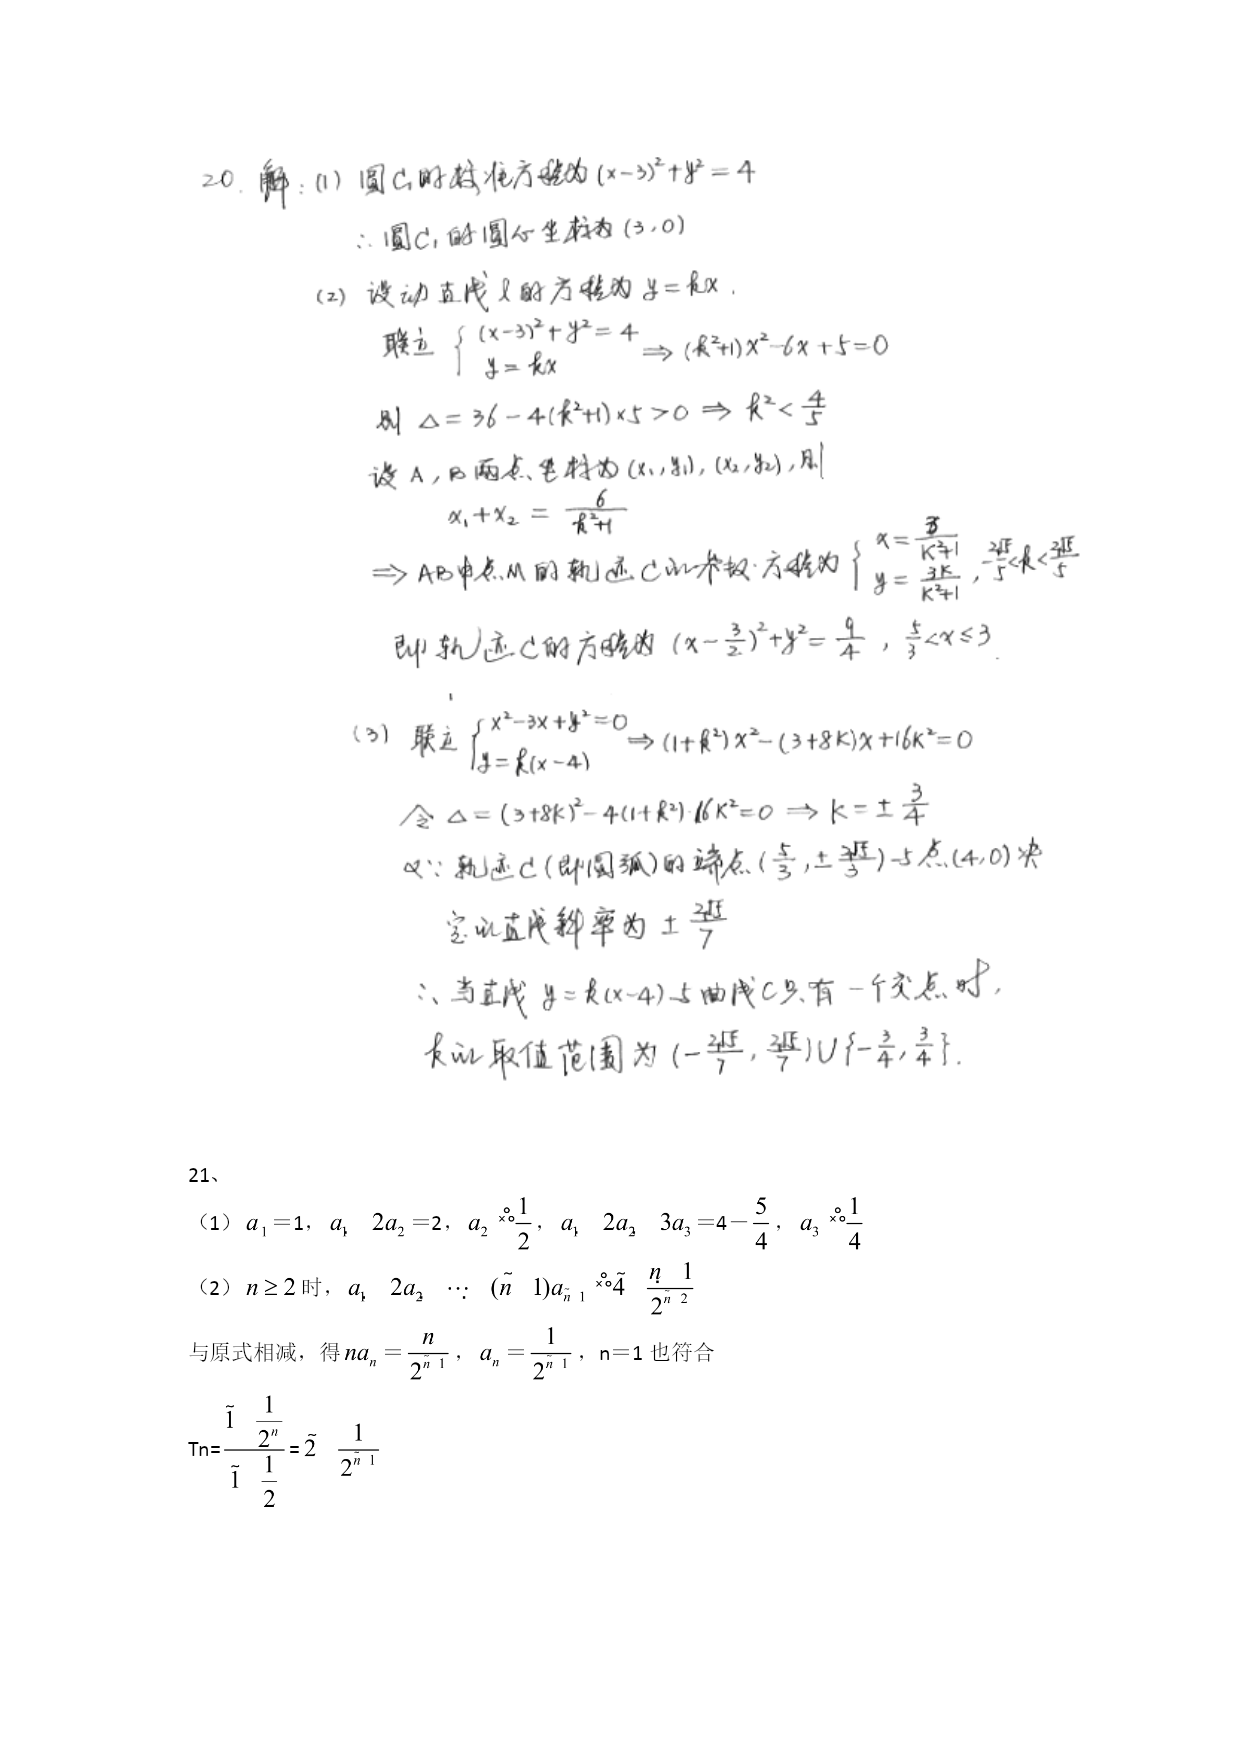 20. 解：(1) 圆C₁的标准方程为 (x-3)²+y²=4
∴圆C₁的圆心坐标为 (3,0)
(2) 设动直线l的方程为 y=kx.
联立 { (x-3)²+y²=4 y=kx ⇒ (k²+1)x²-6x+5=0
则 △=36-4(k²+1)×5>0 ⇒ k²<4/5
设A,B两点坐标为(x₁,y₁),(x₂,y₂),则
x₁+x₂ = 6/(k²+1)
⇒AB中点M的轨迹C的参数方程为 { x=3/(k²+1) y=3k/(k²+1) , -2√5/5<k<2√5/5
即轨迹C的方程为 (x-3/2)²+y²=9/4 , 5/3<x≤3.
(3) 联立 { x²-3x+y²=0 y=k(x-4) ⇒ (1+k²)x²-(3+8k)x+16k²=0
令 △=(3+8k)²-4(1+k²)·16k²=0 ⇒ k=±3/4
又∵轨迹C(即圆弧)的端点(5/3,±2√5/3)与点(4,0)决
定的直线斜率为 ±2√5/7
∴当直线 y=k(x-4)与曲线C只有一个交点时,
k的取值范围为 (-2√5/7, 2√5/7)∪{-3/4, 3/4}.
21、
（1）a₁＝1， a₁, 2a₂＝2， a₂ 1/2， a₁, 2a₂, 3a₃＝4－5/4， a₃ 1/4
（2）n≥2时， a₁, 2a₂, ⋯ (ñ 1)a ñ 1 4̃ n 1/2^ñ 2
与原式相减，得naₙ＝n/2^ñ 1， aₙ＝1/2^ñ 1，n＝1也符合
Tn=(1̃ 1/2ⁿ)/(1̃ 1/2)=2̃ 1/2^ñ 1